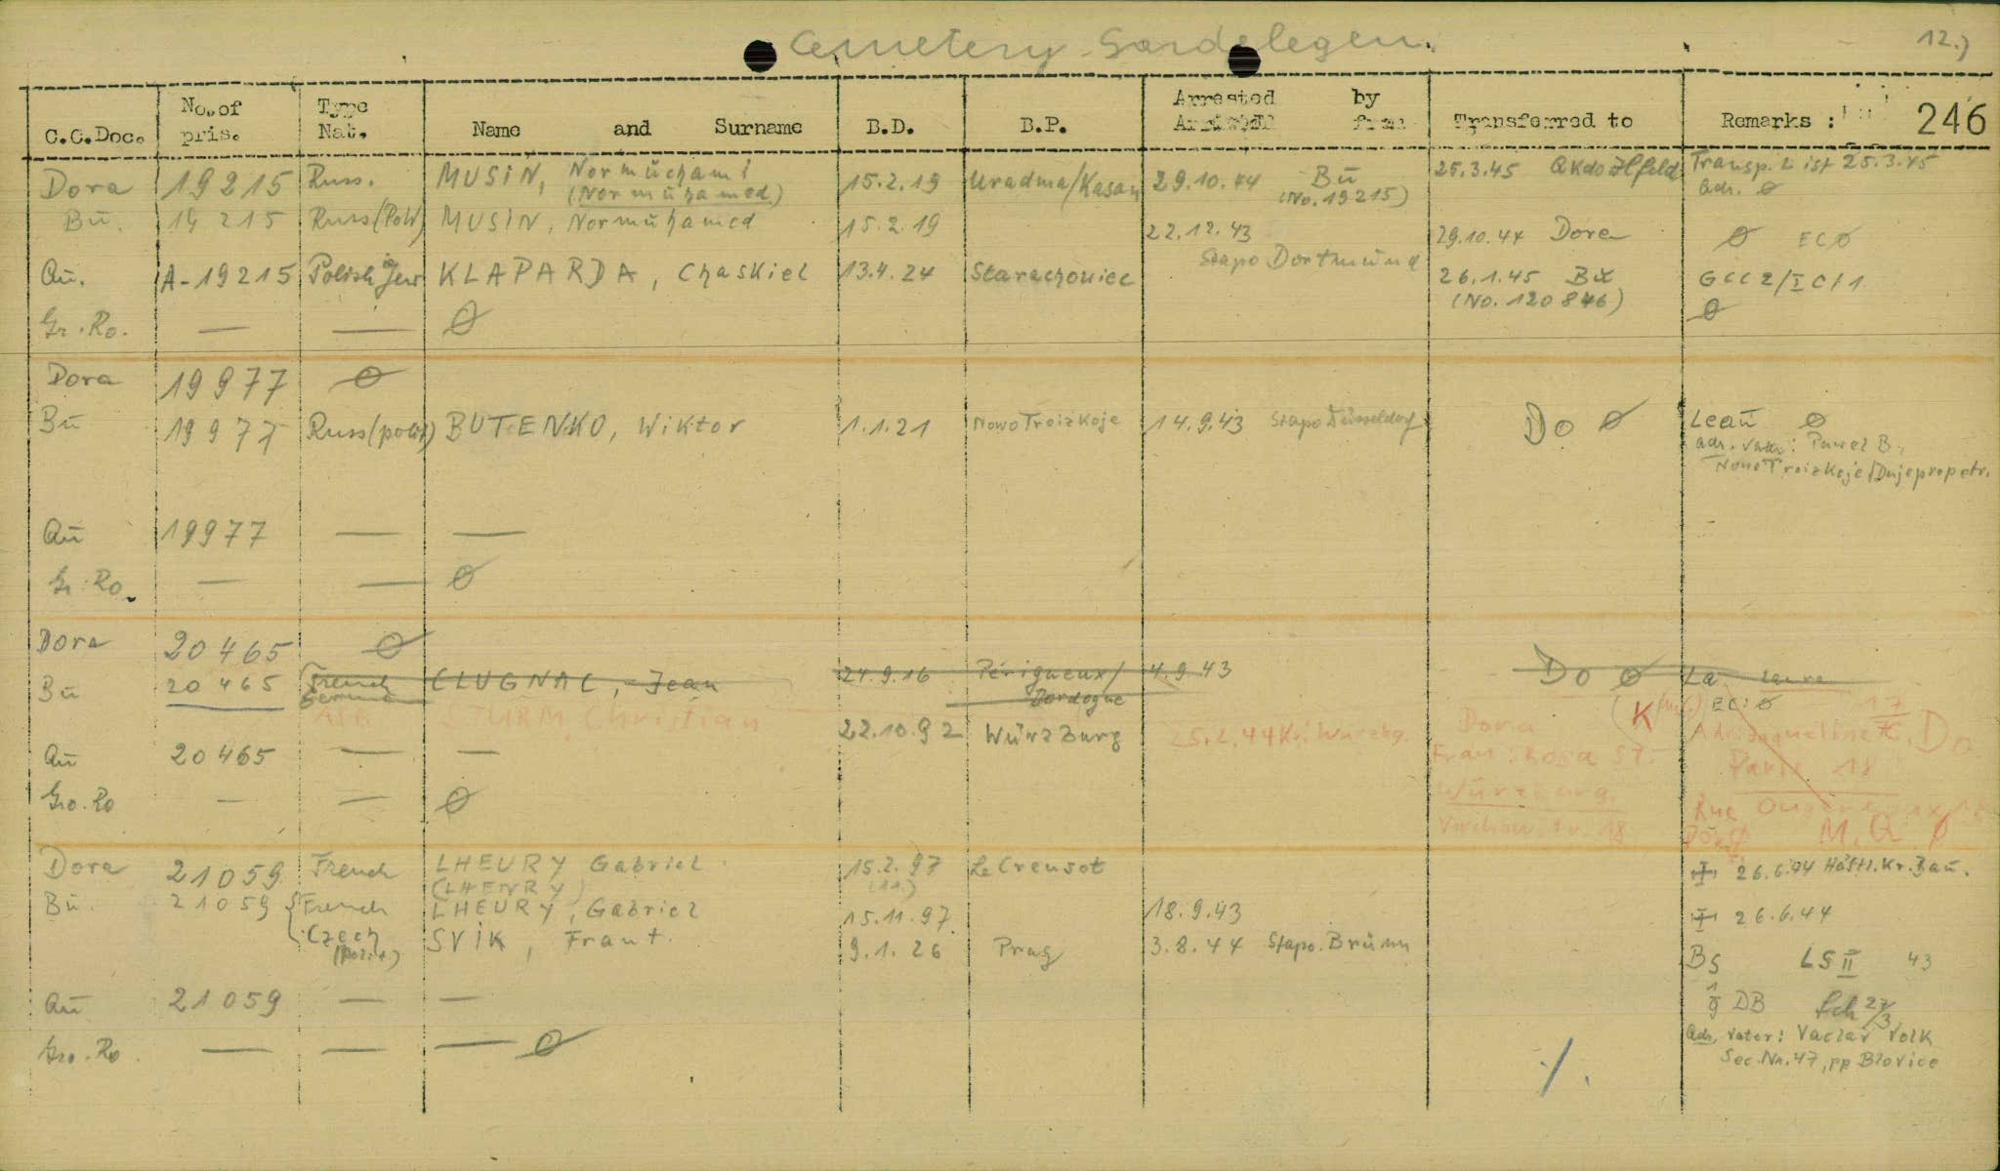 Cemetery Gardelegen. 12.)
C.C.Doc. No. of pris. Type Nat. Name and Surname B.D. B.P. Arrested by Transferred to Remarks : 246
Dora 19215 Russ. MUSIN, Normuchami (Normuhamed) 15.2.19 Uradma/Kasan 29.10.44 Bu (No. 19215) 25.3.45 AKdo Ilfeld Transp. List 25.3.45 adr. ø
Bu. 19215 Russ(PoW) MUSIN, Normuhamed 15.2.19 22.12.43 Stapo Dortmund 29.10.44 Dora ø ECø
Au. A-19215 Polish Jew KLAPARDA, Chaskiel 13.4.24 Starachowiec 26.1.45 Bu (No. 120846) GCC2/IC/1
Gr. Ro. — — ø ø
Dora 19977 ø
Bu 19977 Russ(polit) BUTENKO, Wiktor 1.1.21 NowoTroizkoje 14.9.43 Stapo Düsseldorf Do ø Leau ø
adr. Vater: Pawel B.,
NowoTroizkoje/Dnjepropetr.
Au 19977 — —
Gr. Ro. — — ø
Dora 20465 ø
Bu 20465 French CLUGNAC, Jean 24.9.16 Périgueux/Dordogne 4.9.43 Do ø La. Laura
German EC: ø
ASR STURM, Christian 22.10.92 Würzburg 25.2.44 Kr. Würzbg. Dora
Au 20465 — — Frau: Rosa St. Paris 18
Gro. Ro — — ø Würzburg, Rue
M.Q ø
Dora 21059 French LHEURY Gabriel 15.2.97 Le Creusot 26.6.44 Häftl. Kr. Bau.
(LHENRY) (11.)
Bu. 21059 French LHEURY, Gabriel 15.11.97 18.9.43 26.6.44
Czech (polit.) SVIK, Frant. 9.1.26 Prag 3.8.44 Stapo. Brünn BS LS II 43
Au 21059 — — DB Sch 27/3
Gro. Ro. — — — ø Adr. Vater: Vaclav Volk
Sec. Nr. 47, pp Blovice